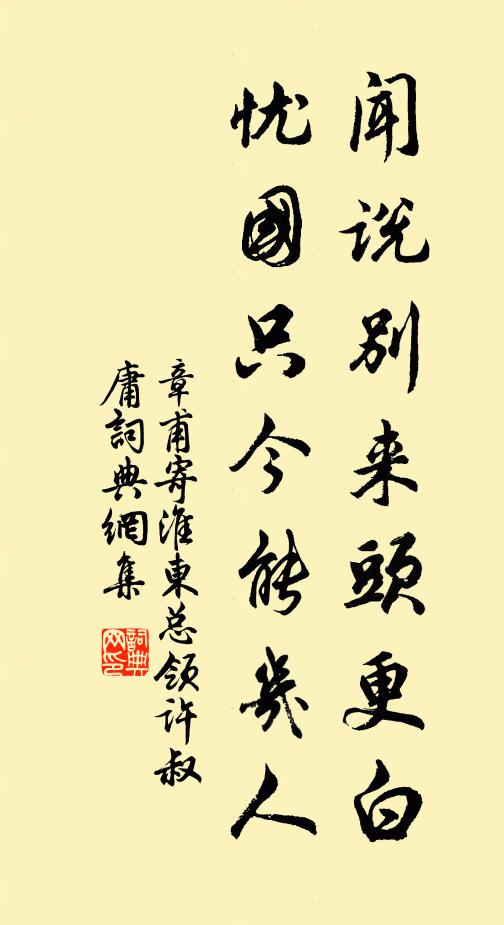 闻说别来頭更白
忧國只今能幾人
章甫寄淮東总领许叔
庸詞典網集
詞典网印